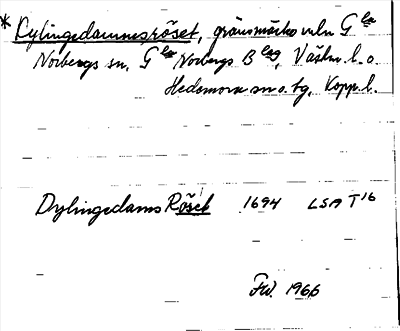 * Dylingsdammsröset, gränsmärke mln Gla
Norbergs sn, Gla Norbergs Blag, Västm. l. o.
Hedemora sn o. tg, Kopp. l.
Dylingsdams Röset 1694 LSA T16
FW. 1966